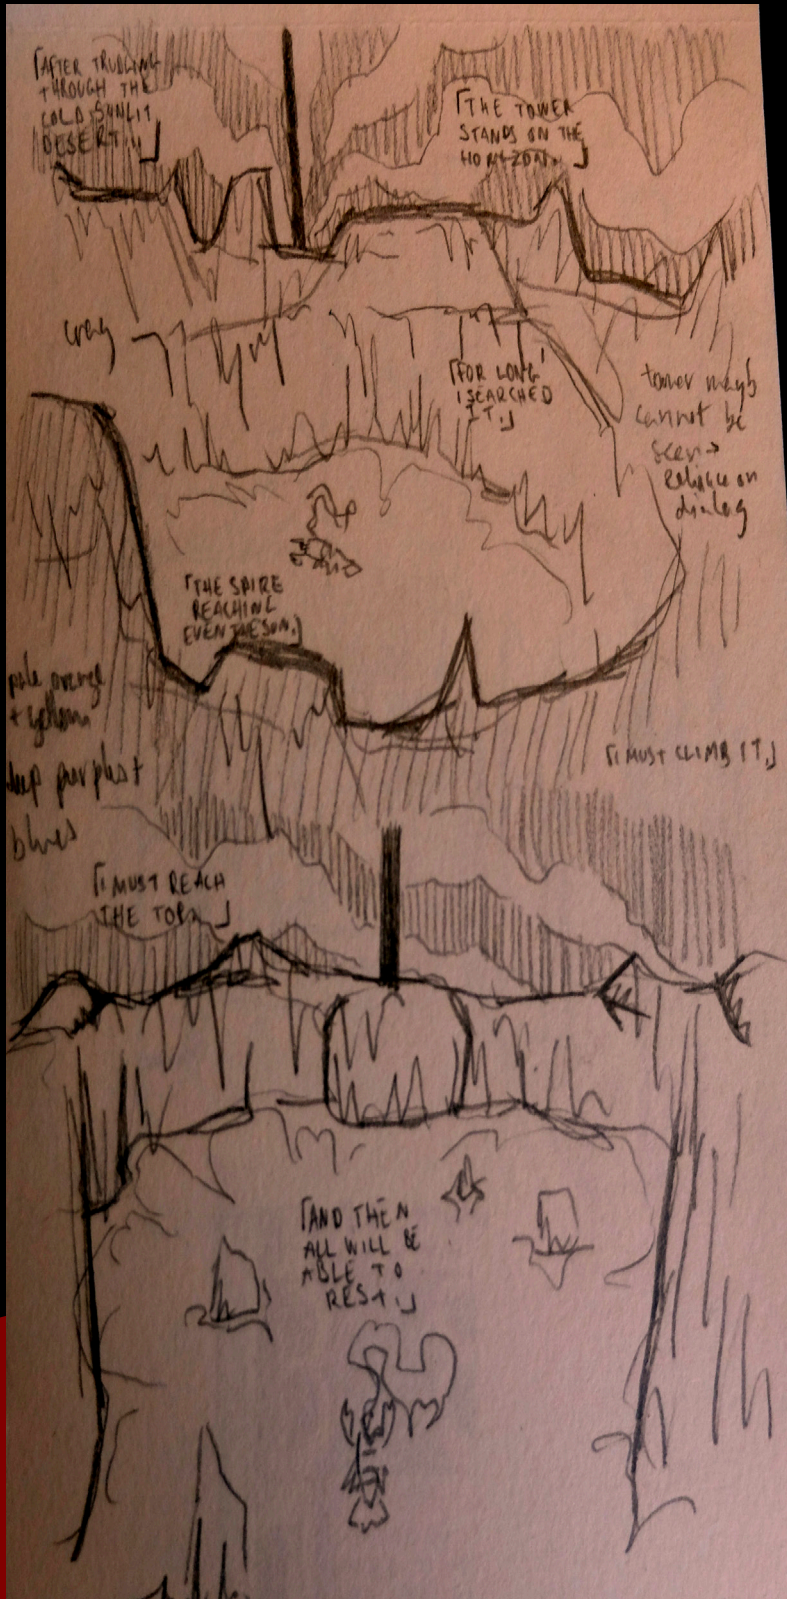 「AFTER TRUDGING
THROUGH THE
COLD, SUNLIT
DESERT...」
「THE TOWER
STANDS ON THE
HORIZON...」
crag
「FOR LONG
I SEARCHED
IT.」
tower mayb
cannot be
seen→
Reliance on
dialog
「THE SPIRE
REACHING
EVEN THE SUN.」
pale orange
+ yellow
deep purples +
blues
「I MUST CLIMB IT.」
「I MUST REACH
THE TOP...」
「AND THEN
ALL WILL BE
ABLE TO
REST.」